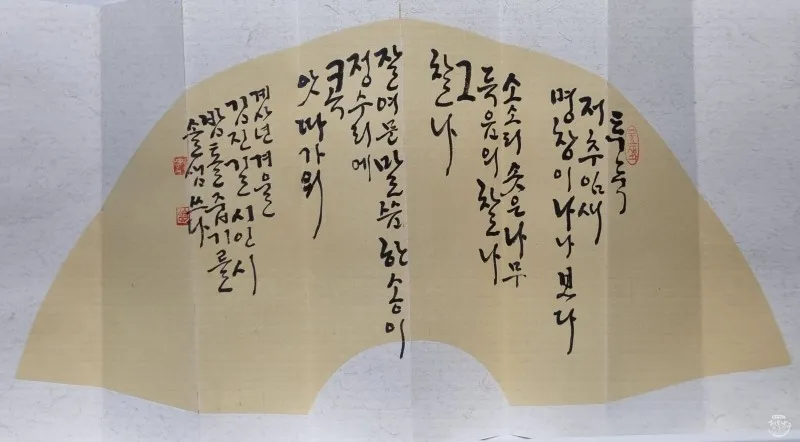 툭 툭
저 추임새
명창이 나나 보다
소소리 솟은 나무
득음의 찰나
그
찰나
잘 여문 말씀 한 송이
정수리에
콕
앗 따가워
계묘년 겨울
김진길 시인 시
밤톨 줍기를
솔샘 쓰다